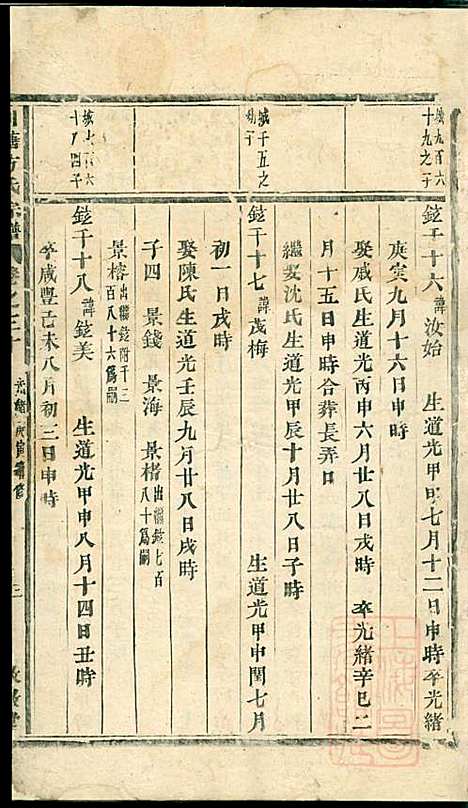 城九百六
十九之子
鉉千十六 諱汝始 生道光甲申七月十二日申時卒光緒
庚寅九月十六日申時
娶戚氏生道光丙申六月廿八日戌時 卒光緒辛巳二
月十五日申時合葬長弄口
繼娶沈氏生道光甲辰十月廿八日子時
城千五之
幼子
鉉千十七 諱茂梅 生道光甲申閏七月
初一日戌時
娶陳氏生道光壬辰九月廿八日戌時
子四 景錢 景海 景楮 出繼鉉七百
八十為嗣
景榕 出繼鉉附千三
百八十六為嗣
城七百六
十八四子
鉉千十八 諱鉉美 生道光甲申八月十四日丑時
卒咸豐己未八月初三日申時
方氏宗譜 卷之三十 光緒戊寅續修